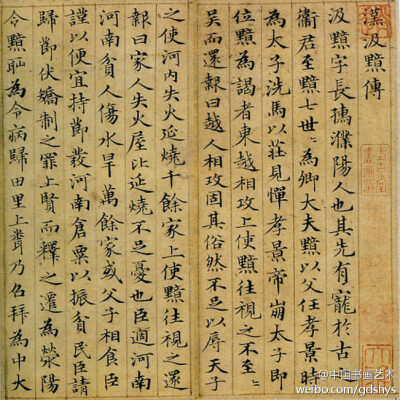 漢汲黯傳
汲黯字長孺濮陽人也其先有寵於古之
衛君至黯七世〻為卿大夫黯以父任孝景時
為太子洗馬以莊見憚孝景帝崩太子即
位黯為謁者東越相攻上使黯往視之不至〻
吳而還報曰越人相攻固其俗然不足以辱天子
之使河内失火延燒千餘家上使黯往視之還
報曰家人失火屋比延燒不足憂也臣過河南
河南貧人傷水旱萬餘家或父子相食臣
謹以便宜持節發河南倉粟以振貧民臣請
歸節伏矯制之罪上賢而釋之遷為滎陽
令黯恥為令病歸田里上聞乃召拜為中大
@中国书画艺术
weibo.com/gdshys